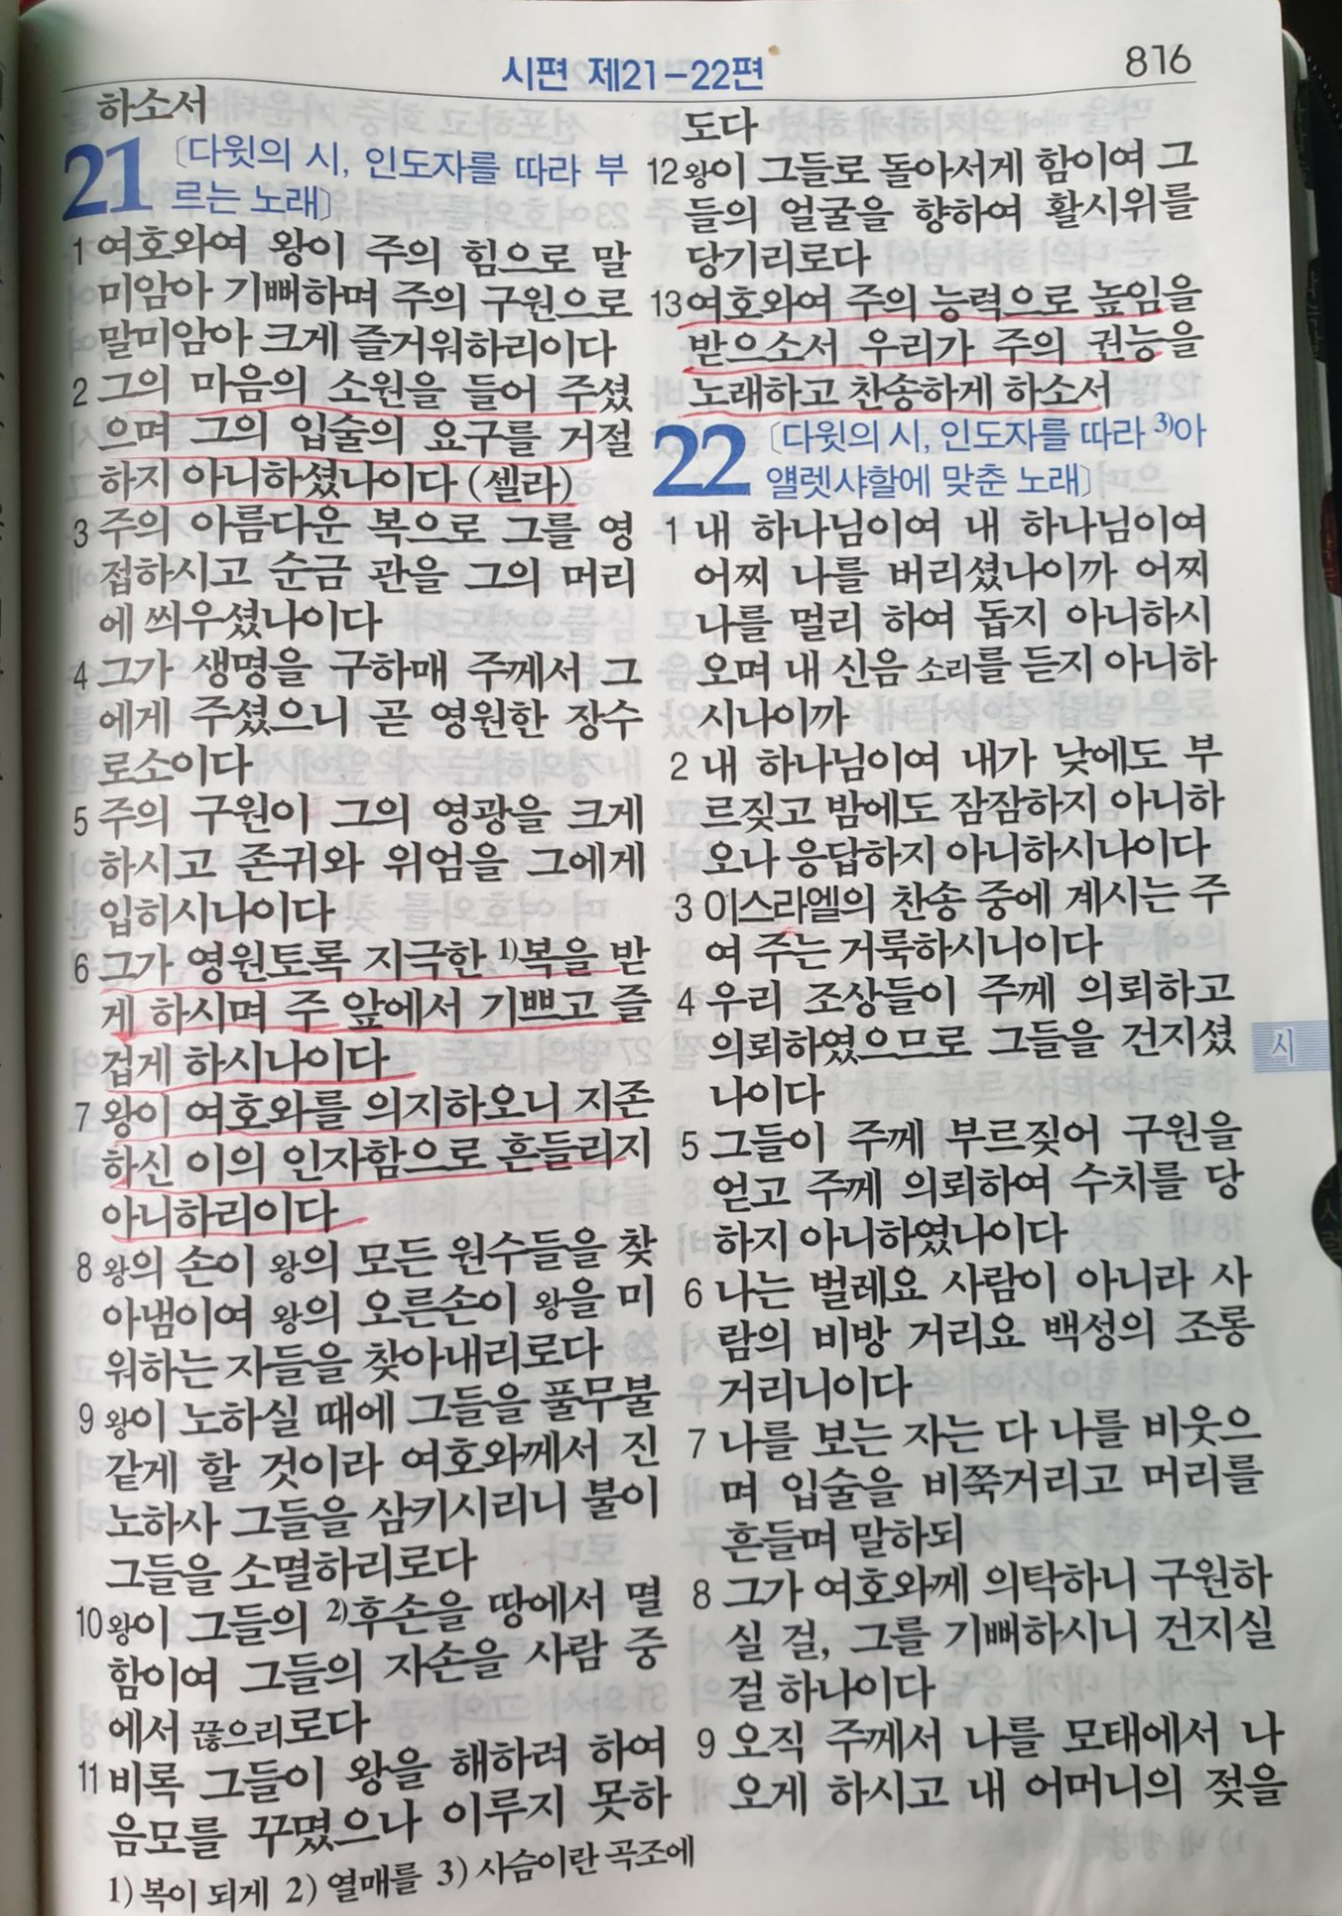 시편 제21-22편
816
하소서
21 〔다윗의 시, 인도자를 따라 부
르는 노래〕
1 여호와여 왕이 주의 힘으로 말
미암아 기뻐하며 주의 구원으로
말미암아 크게 즐거워하리이다
2 그의 마음의 소원을 들어 주셨
으며 그의 입술의 요구를 거절
하지 아니하셨나이다 (셀라)
3 주의 아름다운 복으로 그를 영
접하시고 순금 관을 그의 머리
에 씌우셨나이다
4 그가 생명을 구하매 주께서 그
에게 주셨으니 곧 영원한 장수
로소이다
5 주의 구원이 그의 영광을 크게
하시고 존귀와 위엄을 그에게
입히시나이다
6 그가 영원토록 지극한 1)복을 받
게 하시며 주 앞에서 기쁘고 즐
겁게 하시나이다
7 왕이 여호와를 의지하오니 지존
하신 이의 인자함으로 흔들리지
아니하리이다
8 왕의 손이 왕의 모든 원수들을 찾
아냄이여 왕의 오른손이 왕을 미
워하는 자들을 찾아내리로다
9 왕이 노하실 때에 그들을 풀무불
같게 할 것이라 여호와께서 진
노하사 그들을 삼키시리니 불이
그들을 소멸하리로다
10 왕이 그들의 2)후손을 땅에서 멸
함이여 그들의 자손을 사람 중
에서 끊으리로다
11 비록 그들이 왕을 해하려 하여
음모를 꾸몄으나 이루지 못하
도다
12 왕이 그들로 돌아서게 함이여 그
들의 얼굴을 향하여 활시위를
당기리로다
13 여호와여 주의 능력으로 높임을
받으소서 우리가 주의 권능을
노래하고 찬송하게 하소서
22 〔다윗의 시, 인도자를 따라 3)아
얠렛샤할에 맞춘 노래〕
1 내 하나님이여 내 하나님이여
어찌 나를 버리셨나이까 어찌
나를 멀리 하여 돕지 아니하시
오며 내 신음 소리를 듣지 아니하
시나이까
2 내 하나님이여 내가 낮에도 부
르짖고 밤에도 잠잠하지 아니하
오나 응답하지 아니하시나이다
3 이스라엘의 찬송 중에 계시는 주
여 주는 거룩하시니이다
4 우리 조상들이 주께 의뢰하고
의뢰하였으므로 그들을 건지셨
나이다
5 그들이 주께 부르짖어 구원을
얻고 주께 의뢰하여 수치를 당
하지 아니하였나이다
6 나는 벌레요 사람이 아니라 사
람의 비방 거리요 백성의 조롱
거리니이다
7 나를 보는 자는 다 나를 비웃으
며 입술을 비쭉거리고 머리를
흔들며 말하되
8 그가 여호와께 의탁하니 구원하
실 걸, 그를 기뻐하시니 건지실
걸 하나이다
9 오직 주께서 나를 모태에서 나
오게 하시고 내 어머니의 젖을
시
1) 복이 되게 2) 열매를 3) 사슴이란 곡조에